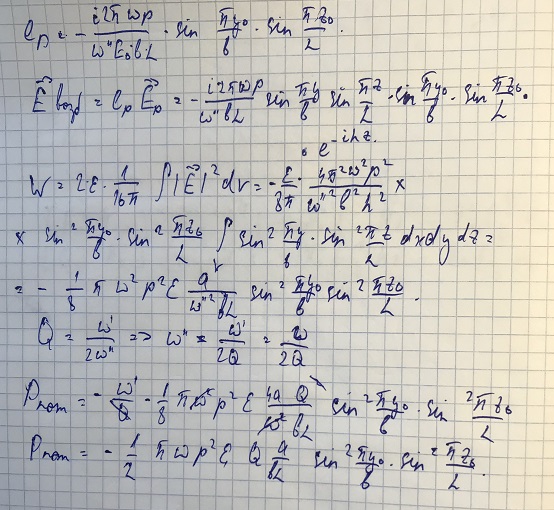 e_p = - i2π ωp / ω''E₀bL · sin πy₀/b · sin πz₀/L.
E⃗ возб = e_p E⃗_p = - i2πωp / ω''bL sin πy/b sin πz/L · sin πy₀/b · sin πz₀/L ·
· e^{-ihz}.
W = 2·ε· 1/16π ∫|E⃗|² dv = - ε/8π · 4π²ω²p² / ω''²b²L² ×
× sin² πy₀/b · sin² πz₀/L ∫_V sin² πy/b · sin² πz/L dxdydz =
= - 1/8 π ω² p² ε a / ω''² bL sin² πy₀/b sin² πz₀/L.
Q = ω'/2ω'' => ω'' = ω'/2Q = ω/2Q
P_пот = - ω'/Q · 1/8 π ω² p² ε 4a Q / ω² bL sin² πy₀/b · sin² πz₀/L
P_пот = - 1/2 π ω p² ε Q a/bL sin² πy₀/b · sin² πz₀/L.